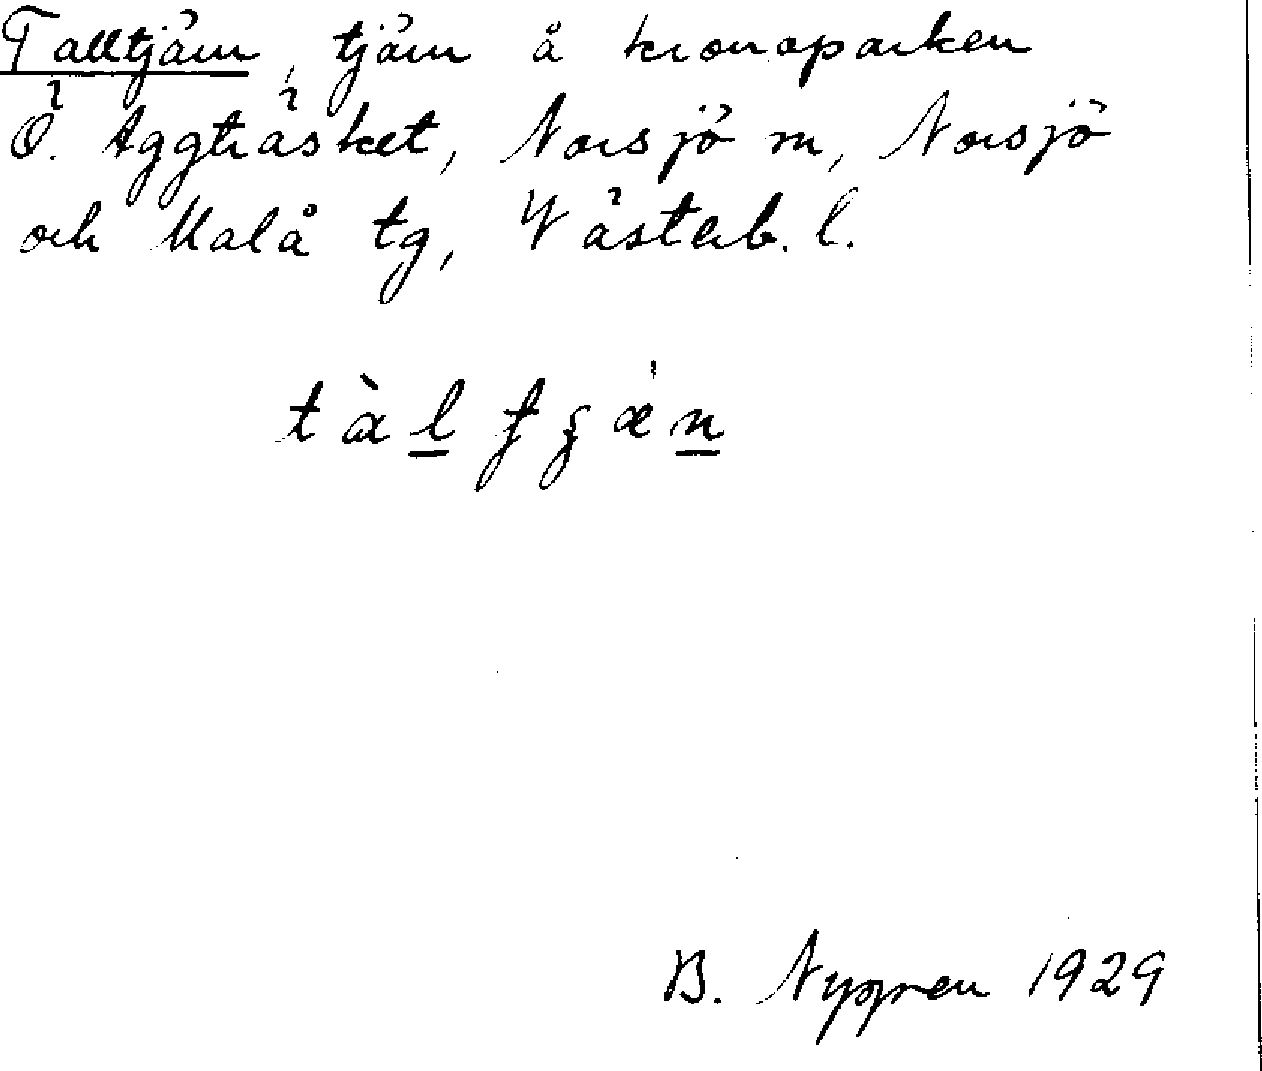 Talltjärn, tjärn å kronoparken
Ö. Aggträsket, Norsjö sn, Norsjö
och Malå tg, Västerb. l.
tàl ƫʒæ̀n
B. Nygren 1929